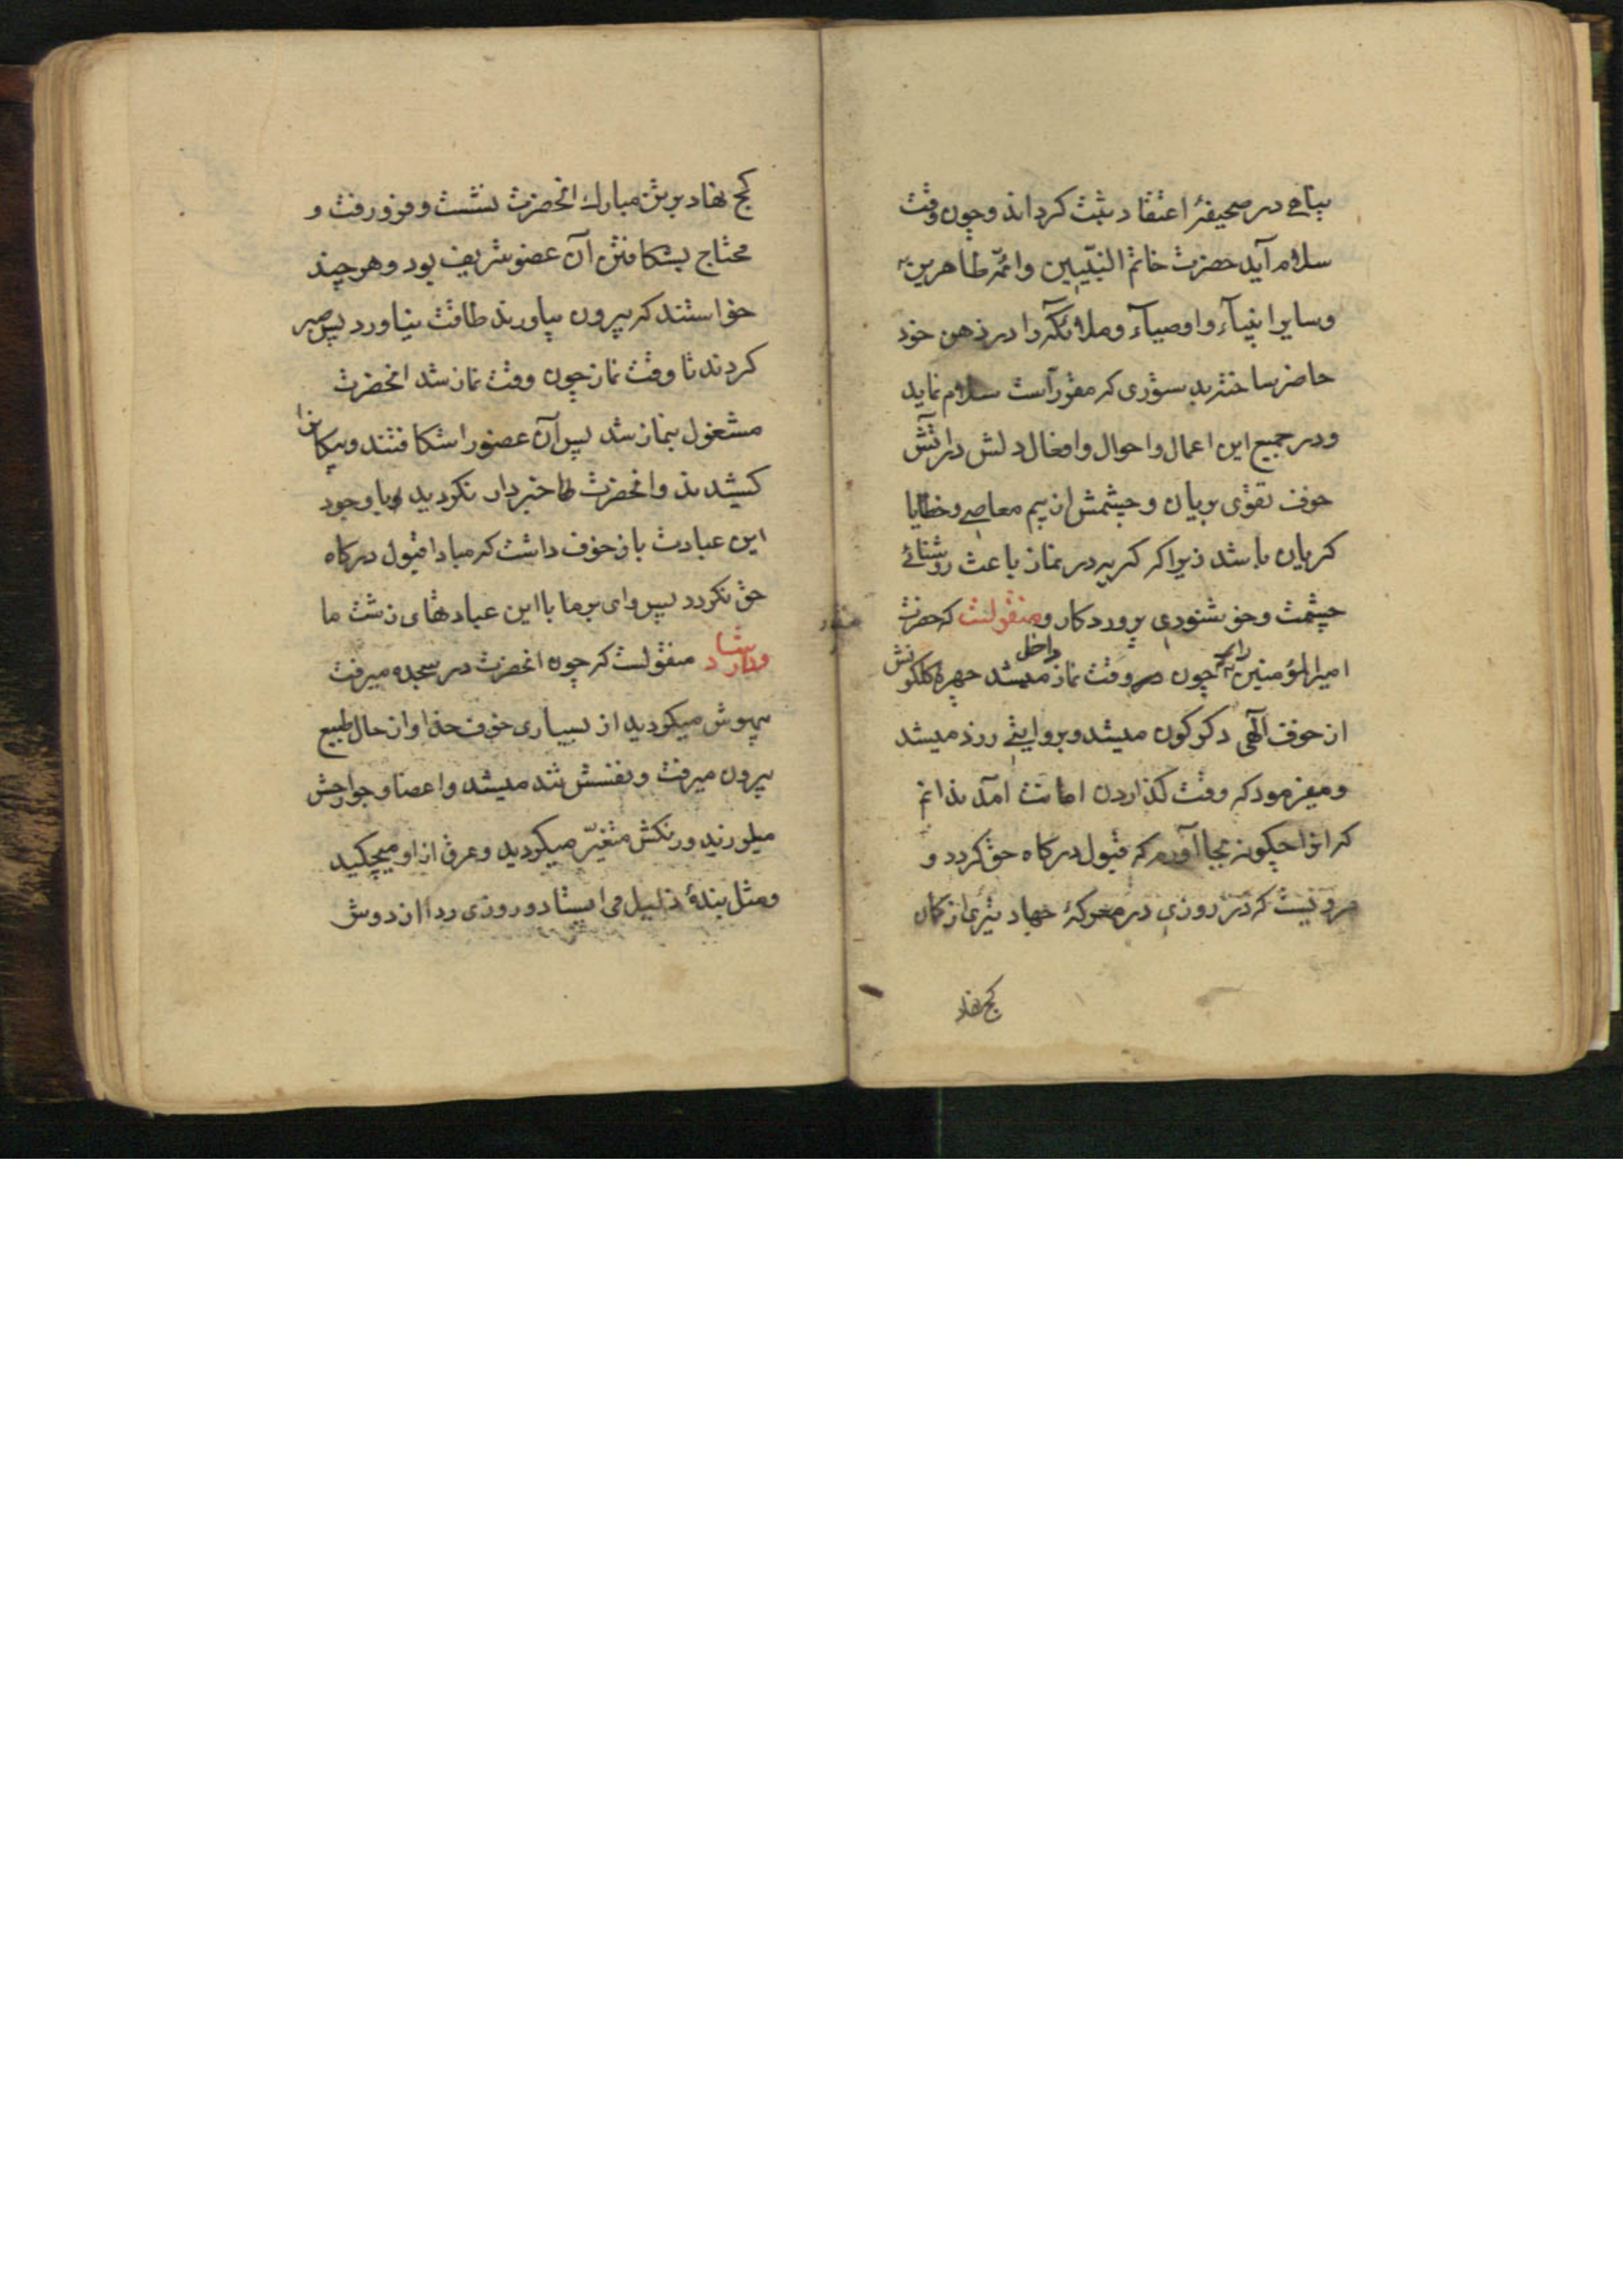 بپاحی در صحیفهٔ اعتقاد ثبت کرداند و چون وقت
سلام آید حضرت خاتم النبیین و ائمّه طاهرین
و سایر انبیآء و اوصیآء و ملائکه را در ذهن خود
حاضر ساخته بدستوری که مقرر است سلام نماید
و در جمیع این اعمال و احوال و افعال دلش در آتش
خوف تقوی بریان و چشمش از بیم معاصی و خطایا
کریان باشد زیرا که کریه در نماز باعث روشنائی
چشمت و خوشنودی پروردکار و منقولست که حضرت
امیرالمؤمنین را چون وقت نماز داخل میشد چهرهٔ کلکونش
از خوف آلهی دکرکون میشد و بروایتی زرد میشد
و میفرمود که وقت کذاردن امانت آمد ندانم
که انرا چکونه بجا آورم که قبول درکاه حق کردد و
مرویست که در روزی در معرکهٔ جهاد تیری از کمان
کج نهاد
کج نهاد بر تن مبارک انحضرت نشست و فرو رفت و
محتاج بشکافتن آن عضو شریف بود و هر چند
خواستند که بیرون بیاورند طاقت نیاورد پس صبر
کردند تا وقت نماز چون وقت نماز شد انحضرت
مشغول بنماز شد پس آن عضو را شکافتند و پیکانرا
کشیدند و انحضرت خبردار نکردید و با وجود
این عبادت باز خوف داشت که مبادا قبول درکاه
حق نکردد پس وای بر ما با این عبادتهای زشت ما
منقولست که چون انحضرت در سجده میرفت
بیهوش میکردید از بسیاری خوف خدا و از حال طبیع
بیرون میرفت و نفسش تند میشد و اعضا و جوارحش
میلرزید و رنکش متغیّر میکردید و عرق از او میچکید
و مثل بندهٔ ذلیل می ایستاد و روزی ردا از دوش